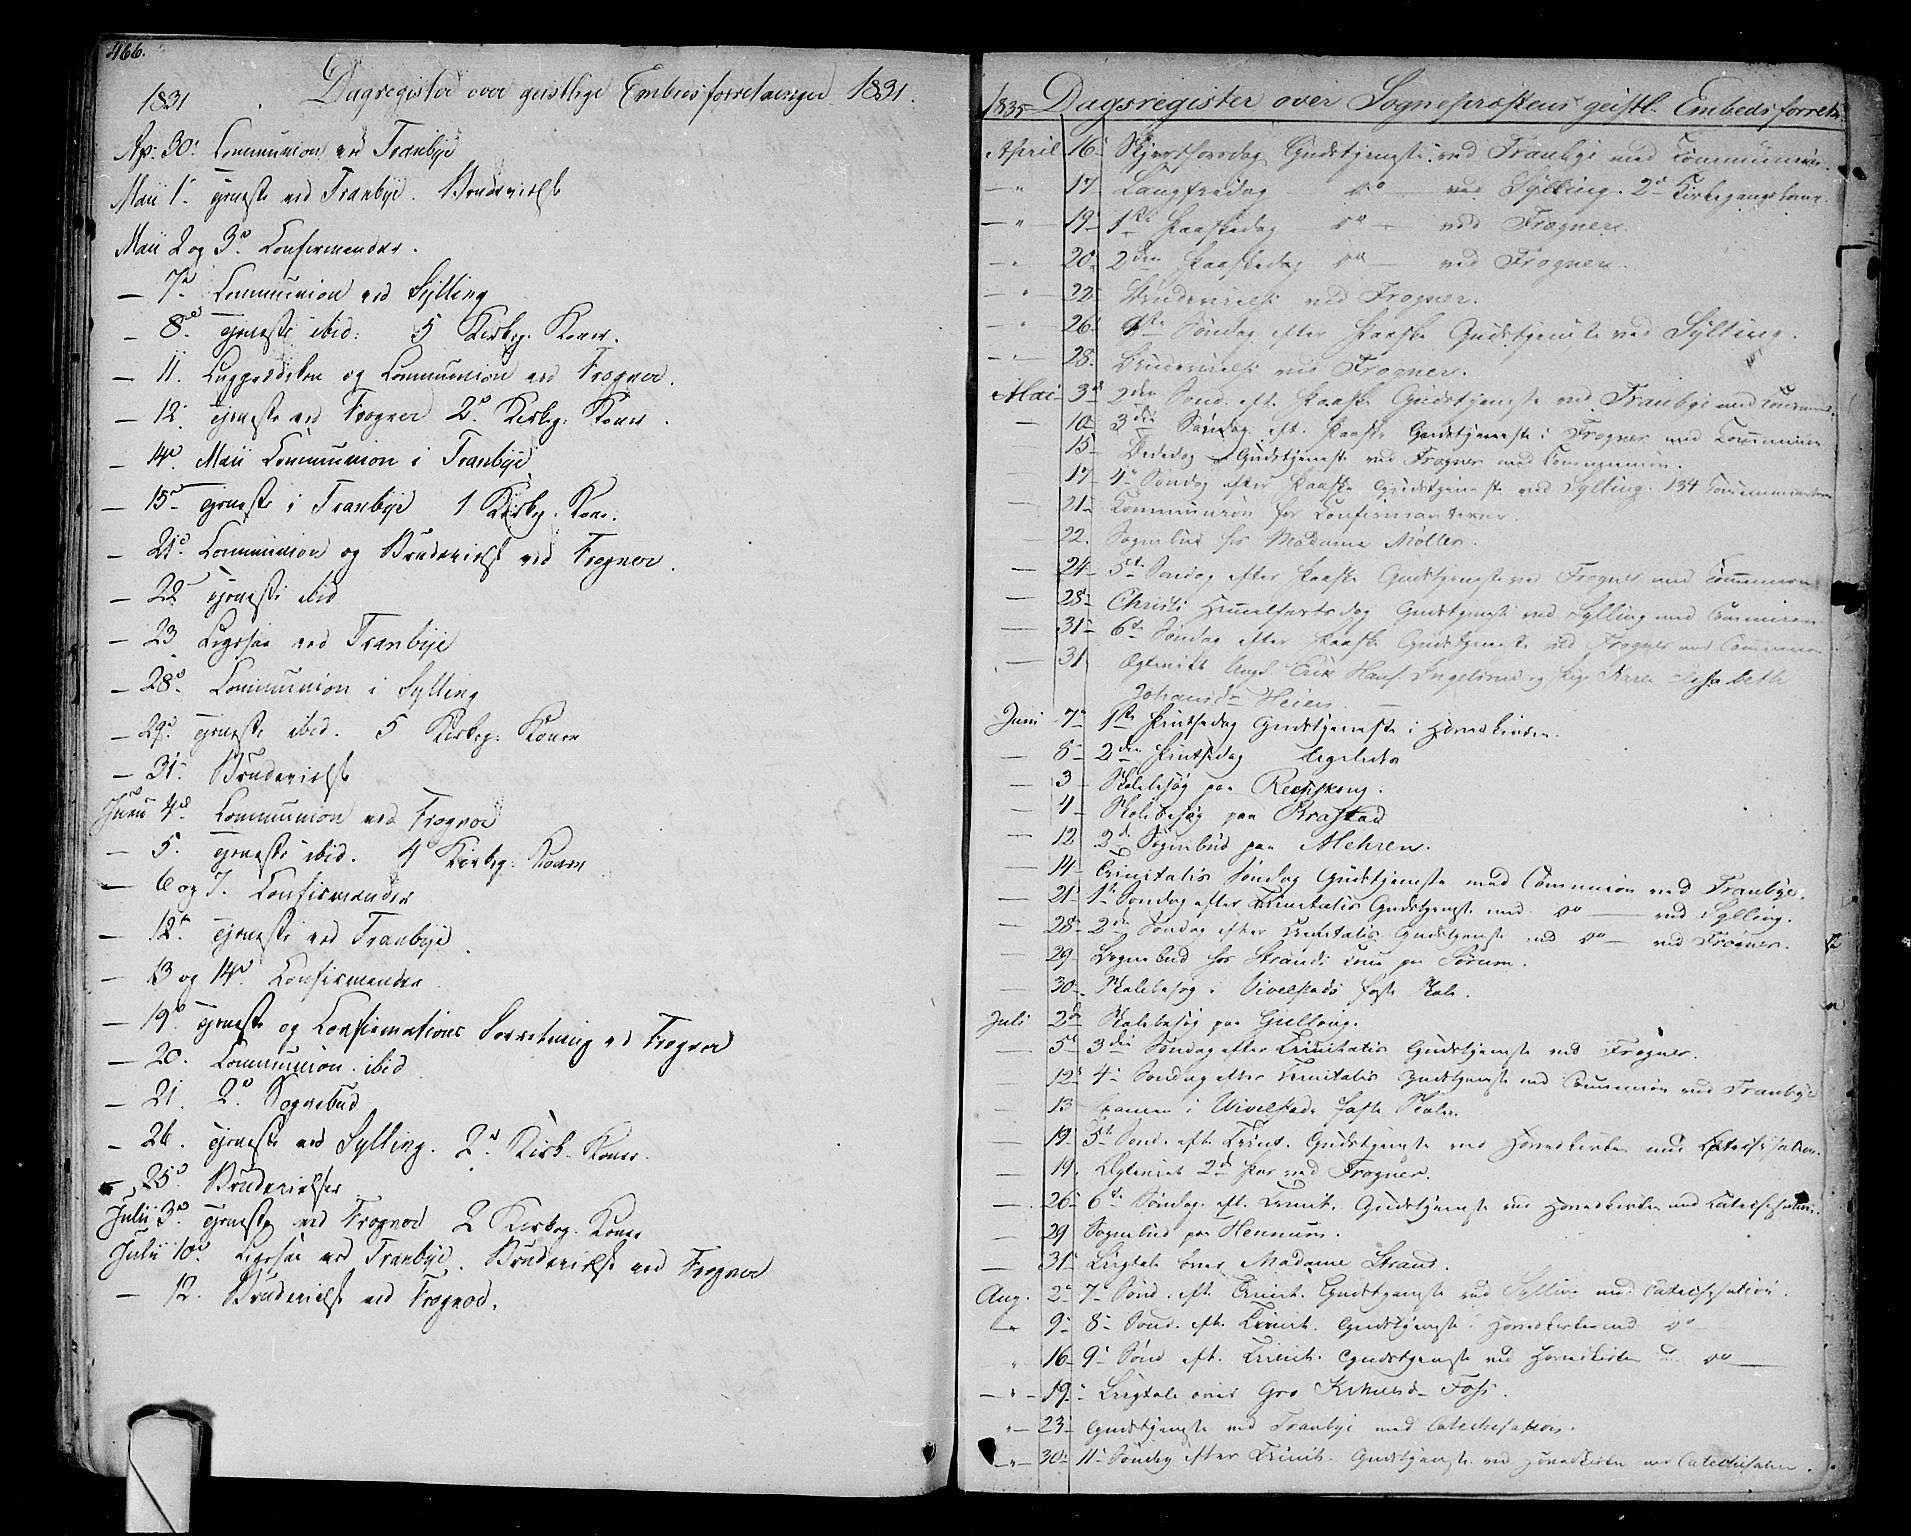 466.
1831 Dagregister over geistlige Embedsforretninger 1831.
Ap: 30. Communion ved Tranbye
Maii 1. Tjeneste ved Tranbye. Brudevielse
Maii 2 og 3d Confirmander.
— 7d Communion ved Sylling
— 8de Tjeneste ibid: 5 Kirkeg. Koner.
— 11. og Communion ved Frogner.
— 12. Tjeneste ved Frogner 2d Kirkeg: Koner.
— 14d Maii Communion i Tranbye
— 15de Tjeneste i Tranbye 1 Kirkeg. Kone.
— 21d Communion og Brudevielse ved Frogner.
— 22 Tjeneste ibid
— 23 Tranbye
— 28d. Communion i Sylling
— 29d. Tjeneste ibid. 5 Kirkeg: Koner
— 31. Brudevielse
Junii 4d. Communion ved Frogner
— 5. Tjeneste ibid. 4 Kirkeg: Koner
— 6 og 7. Confirmander
— 12t. Tjeneste ved Tranbye
— 13 og 14d. Confirmander
— 19d Tjeneste og Confirmations Forretning ved Frogner
— 20. Communion ibid
— 21. 2d Sognebud
— 26. Tjeneste ved Sylling. 2d Kirk. Koner.
— 25d Brudevielser
Julii 3d Tjeneste ved Frogner 2 Kirkeg. Koner
Julii 10de ved Tranbye. Brudevielse ved Frogner
— 12. Brudevielse ved Frogner.
1835 Dagsregister over Sognepræstens geistl. Embedsforretn
April 16 Skjærthorsdag Gudstjeneste ved Tranbye med Communion.
— " 17 Langfredag — do — ved Sylling. 2d Kirkegangskoner.
— " 19 1ste Paaskedag — do — ved Frogner.
— " 20 2den Paaskedag do — ved Frogner.
— " 22 Brudevielse ved Frogner.
— " 26 1ste Søndag efter Paaske Gudstjeneste ved Sylling.
— " 28. Brudevielse ved Frogner.
Mai 3d 2den Sønd. eft. Paaske Gudstjeneste ved Tranbye med Commun.
— 10 3die Søndag eft. Paaske Gudstjeneste i Frogner med Communion
— 15 Bededag Gudstjeneste ved Frogner med Communion.
— 17 4d Søndag efter Paaske Gudstjeneste ved Sylling. 134 Communicanter
— 21 Communion for Confirmanterne.
— 22. Sognebud hos Madame Møller.
— 24 5te Søndag efter Paaske Gudstjeneste ved Frogner med Communion
— 28 Christi Himmelfartsdag Gudstjeneste ved Sylling med Communion
— 31 6te Søndag efter Paaske Gudstjeneste ved Frogner med Communion
— 31 Ægteviet Ungk. Erik Hans. Ingelsrud og Pig. Karen Elisabeth
Johansdr Heien. —
Juni 7d 1ste Pintsedag Gudstjeneste i Hovedkirken.
— 8 2den Pintsedag ligeledes
— 3 Skolebesøg paa
— 4 Skolebesøg paa Brastad
— 12 2d Sognebud paa Mehren.
— 14 Trinitatis Søndag Gudstjeneste med Communion ved Tranbye.
— 21 1te Søndag efter Trinitatis Gudstjeneste med do — ved Sylling.
— 28 2den Søndag efter Trinitatis Gudstjeneste med do — ved Frogner.
— 29 Sognebud hos Strands Kone paa Sørum.
— 30 Skolebesøg i Vivelstads faste Skole.
Juli 2d Skolebesøg paa Gullaug.
— 5d 3die Søndag efter Trinitatis Gudstjeneste ved Frogner.
— 12 4d Søndag efter Trinitatis Gudstjeneste med Communion ved Tranbye
— 13 Examen i Vivelstads faste Skole.
— 19 5te Sønd. eft. Trinit. Gudstjeneste ved Hovedkirken med Catechisation.
— 19. Ægteviet 2d Par ved Frogner.
— 26 6te Søndag. eft. Trinit. Gudstjeneste ved Hovedkirken med Catechisation.
— 29 Sognebud paa Hennum.
— 31 Liigtale over Madame Strand.
Aug. 2d 7d Sønd. eft. Trinit. Gudstjeneste ved Sylling med Catechisation.
— 9 8 Sønd. eft. Trinit. Gudstjeneste i Hovedkirken med do —
" 16 9d Sønd eft. Trinit. Gudstjeneste ved Hovedkirken med do —
— " — 19. Liigtale over Gro Foss.
" 23 Gudstjeneste ved Tranbye med Catechisation.
— " 30 11d Søndag efter Trinit. Gudstjeneste ved Hovedkirken med Catechisation.